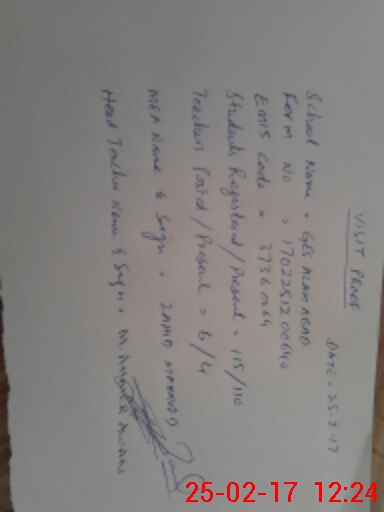 VISIT PROOF
DATE = 25-2-17
School Name = GES ALAM ABAD
Form No = 
EMIS Code = 37360264
Students Registered / Present = 115/110
Teachers Posted / Present = 6/4
MEA Name & Sign = ZAHID MAHMOOD
Head Teacher Name & Sign = M.
25-02-17 12:24